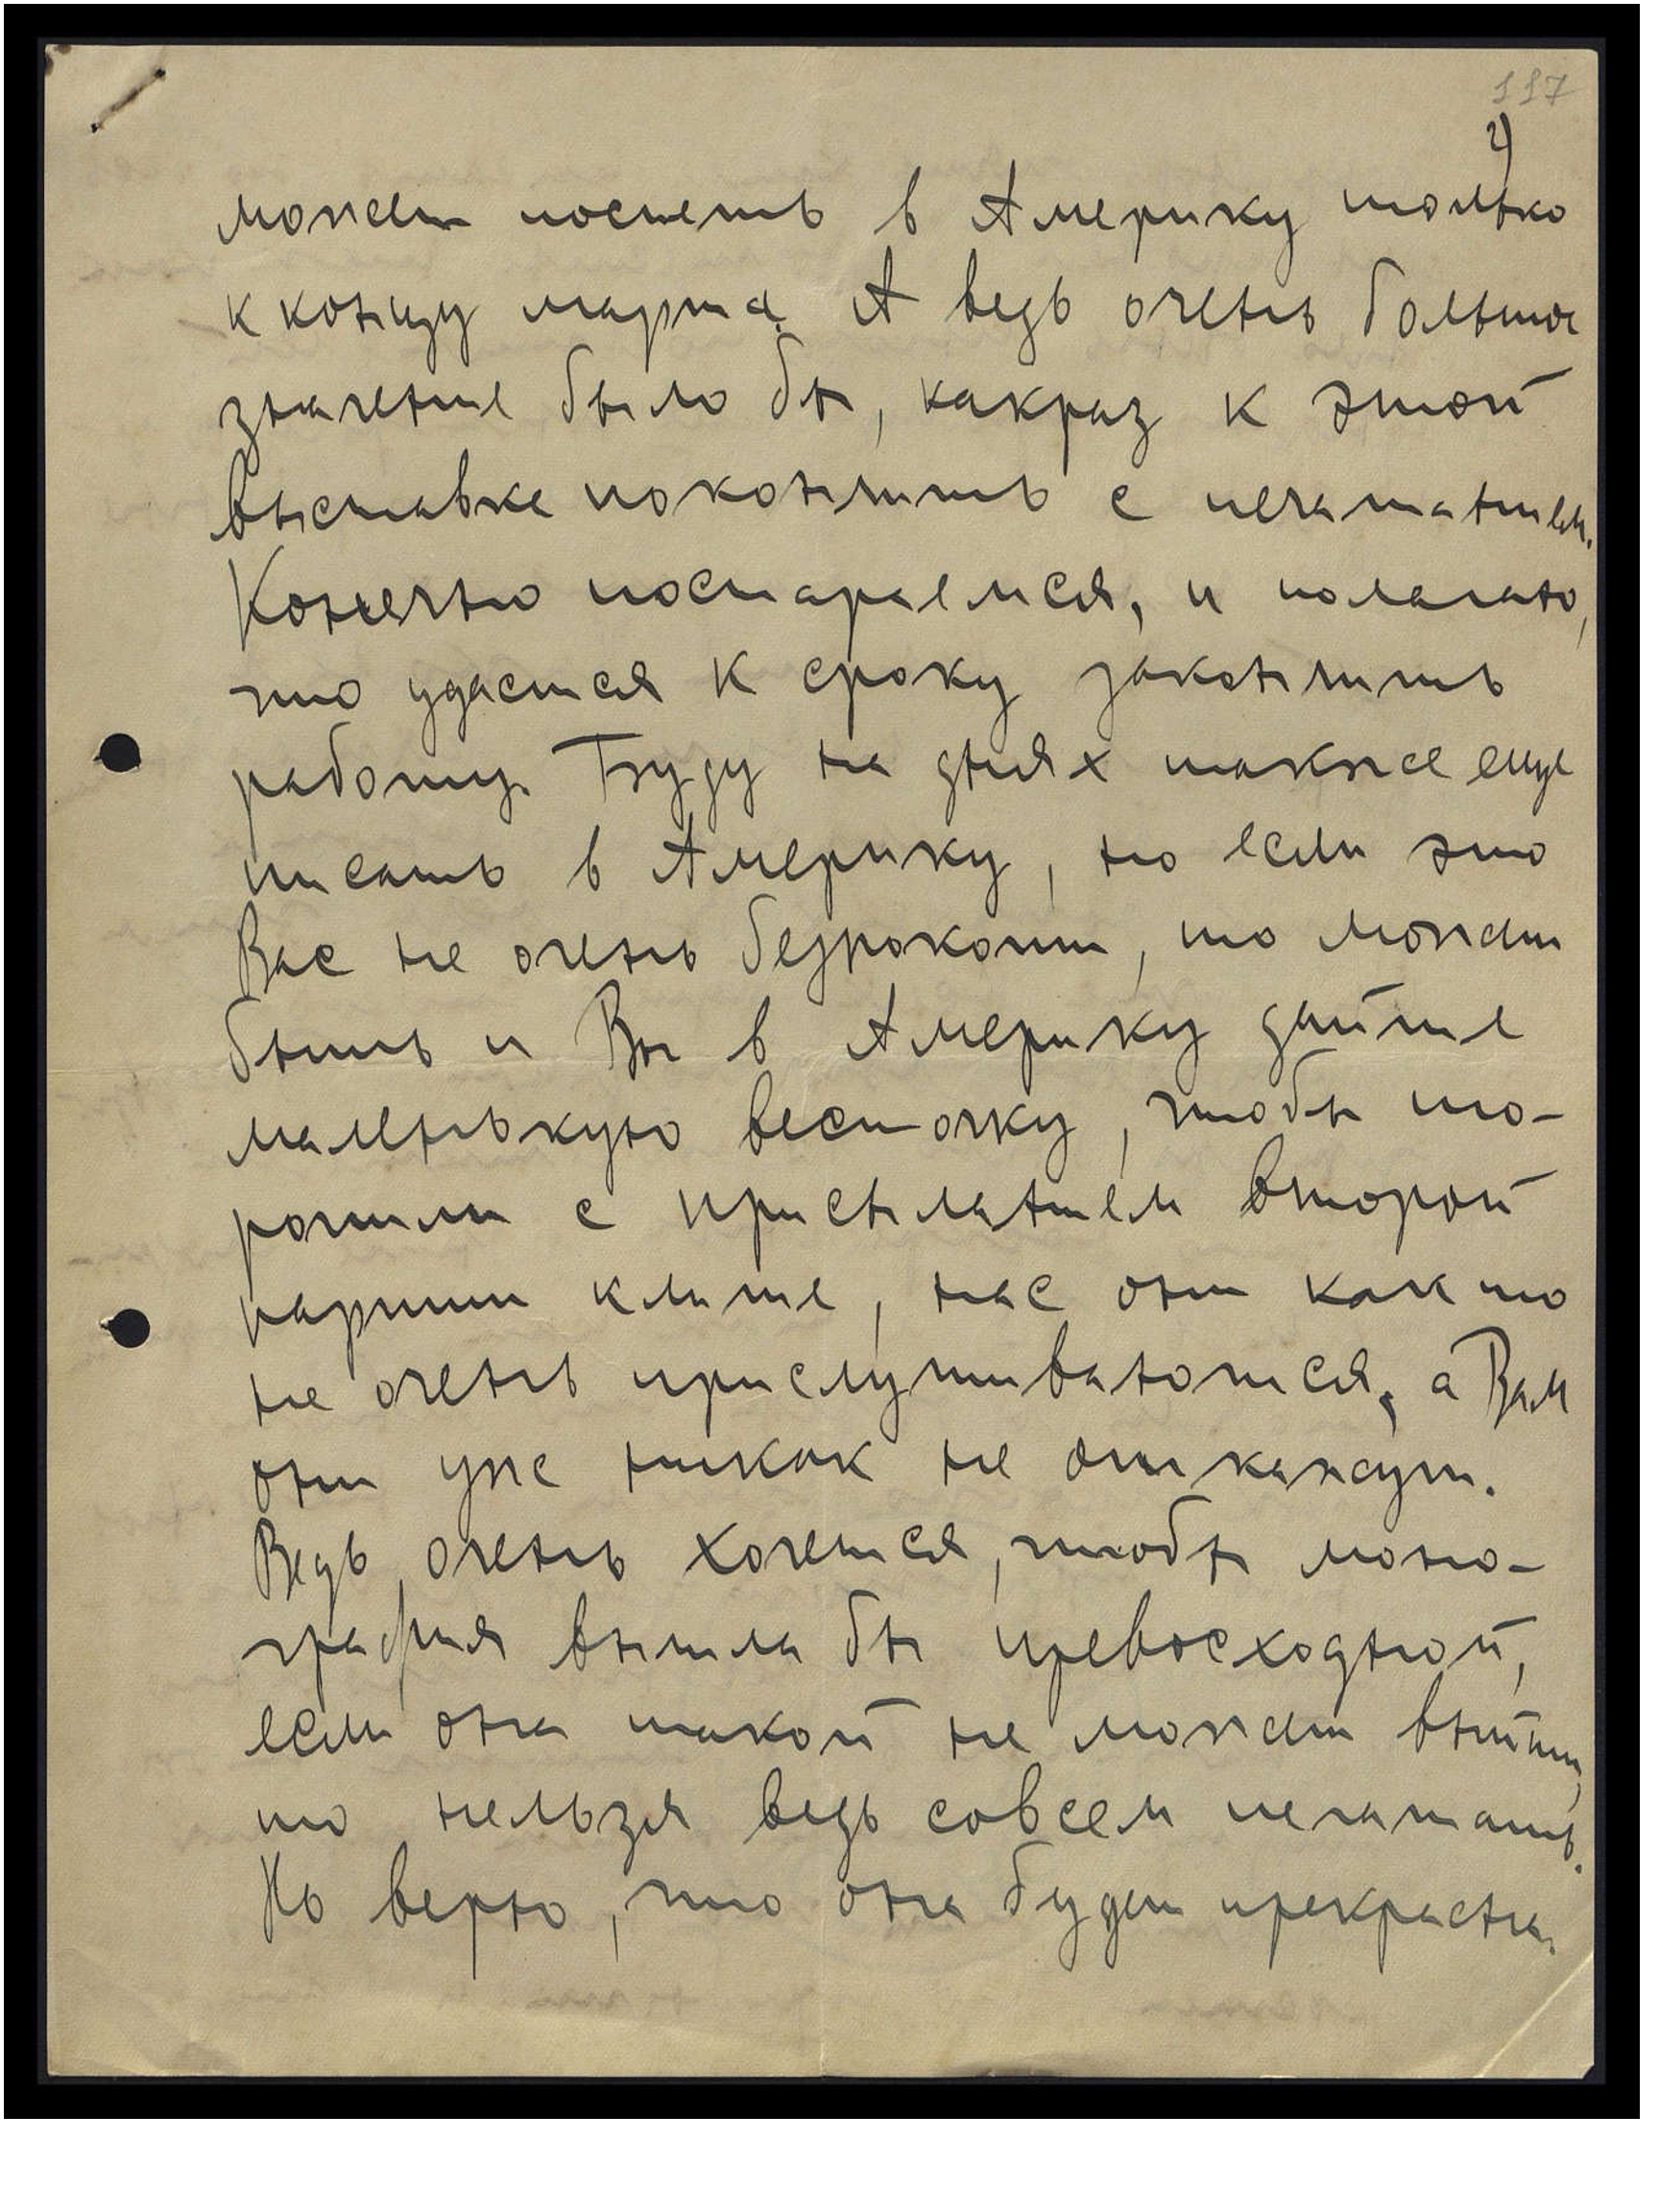 117
2)
может поспеть в Америку только
к концу марта. А ведь очень большое
значение было бы, какраз к этой
выставке покончить с печатанием.
Конечно постараемся, и полагаю,
что удастся к сроку закончить
работу. Буду на днях также еще
писать в Америку, но если это
Вас не очень безпокоит, то может
быть и Вы в Америку дайте
маленькую весточку, чтобы то-
ропили с присыланием второй
партии клише, нас они как то
не очень прислушиваются, а Вам
они уже никак не откажут.
Ведь очень хочется, чтобы моно-
графия вышла бы превосходной,
если она такой не может выйти,
то нельзя ведь совсем печатать.
Но верю, что она будет прекрасна.